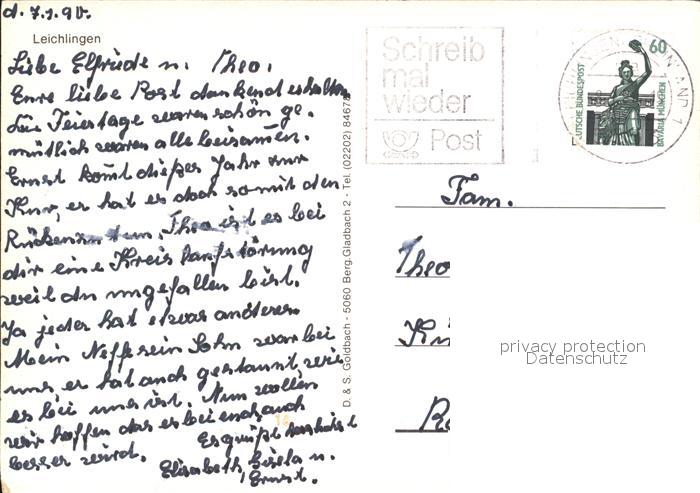 d. 7.1.90.
Leichlingen
Liebe Elfriede u. Theo.
Eure liebe Post dankend erhalten
Die Feiertage waren schön ge.
mütlich waren alle beisamen.
Ernst komt dieses Jahr zur
Kur, er hat es doch so mit den
Rücken Theo ist es bei
dir eine Kreislaufstörung
weil du umgefallen bist.
Ja jeder hat etwas anderes
Mein Neffe sein Sohn war bei
uns er hat auch gestaunt, wie
es bei uns ist. Nun wollen
wir hoffen das es bei euch auch
besser wird.
Es grüßt herzlich
Elisabeth, Gisela u.
Ernst.
D. & S. Goldbach - 5060 Berg.Gladbach 2 - Tel. (02202) 84678
Schreib
mal
wieder
Post
60
DEUTSCHE BUNDESPOST
BAVARIA MÜNCHEN
Fam.
Theo
privacy protection
Datenschutz